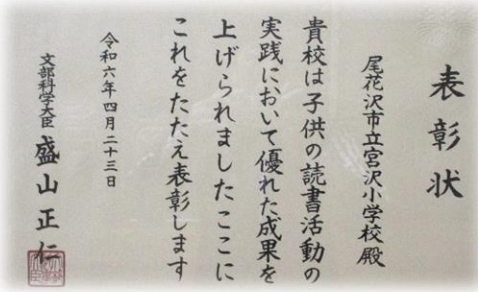 表彰状
尾花沢市立宮沢小学校殿
貴校は子供の読書活動の
実践において優れた成果を
上げられましたここに
これをたたえ表彰します
令和六年四月二十三日
文部科学大臣 盛山正仁